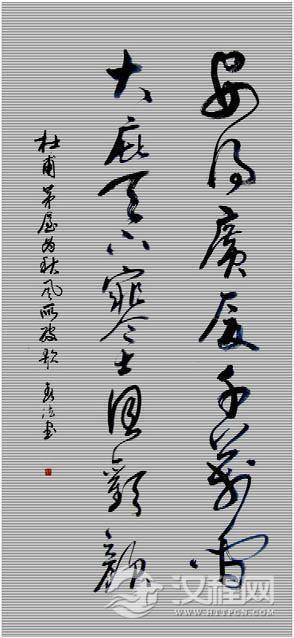 安得廣廈千萬間
大庇天下寒士俱歡顔
杜甫茅屋为秋風所破歌 书
汉程网
HTTPCN.COM